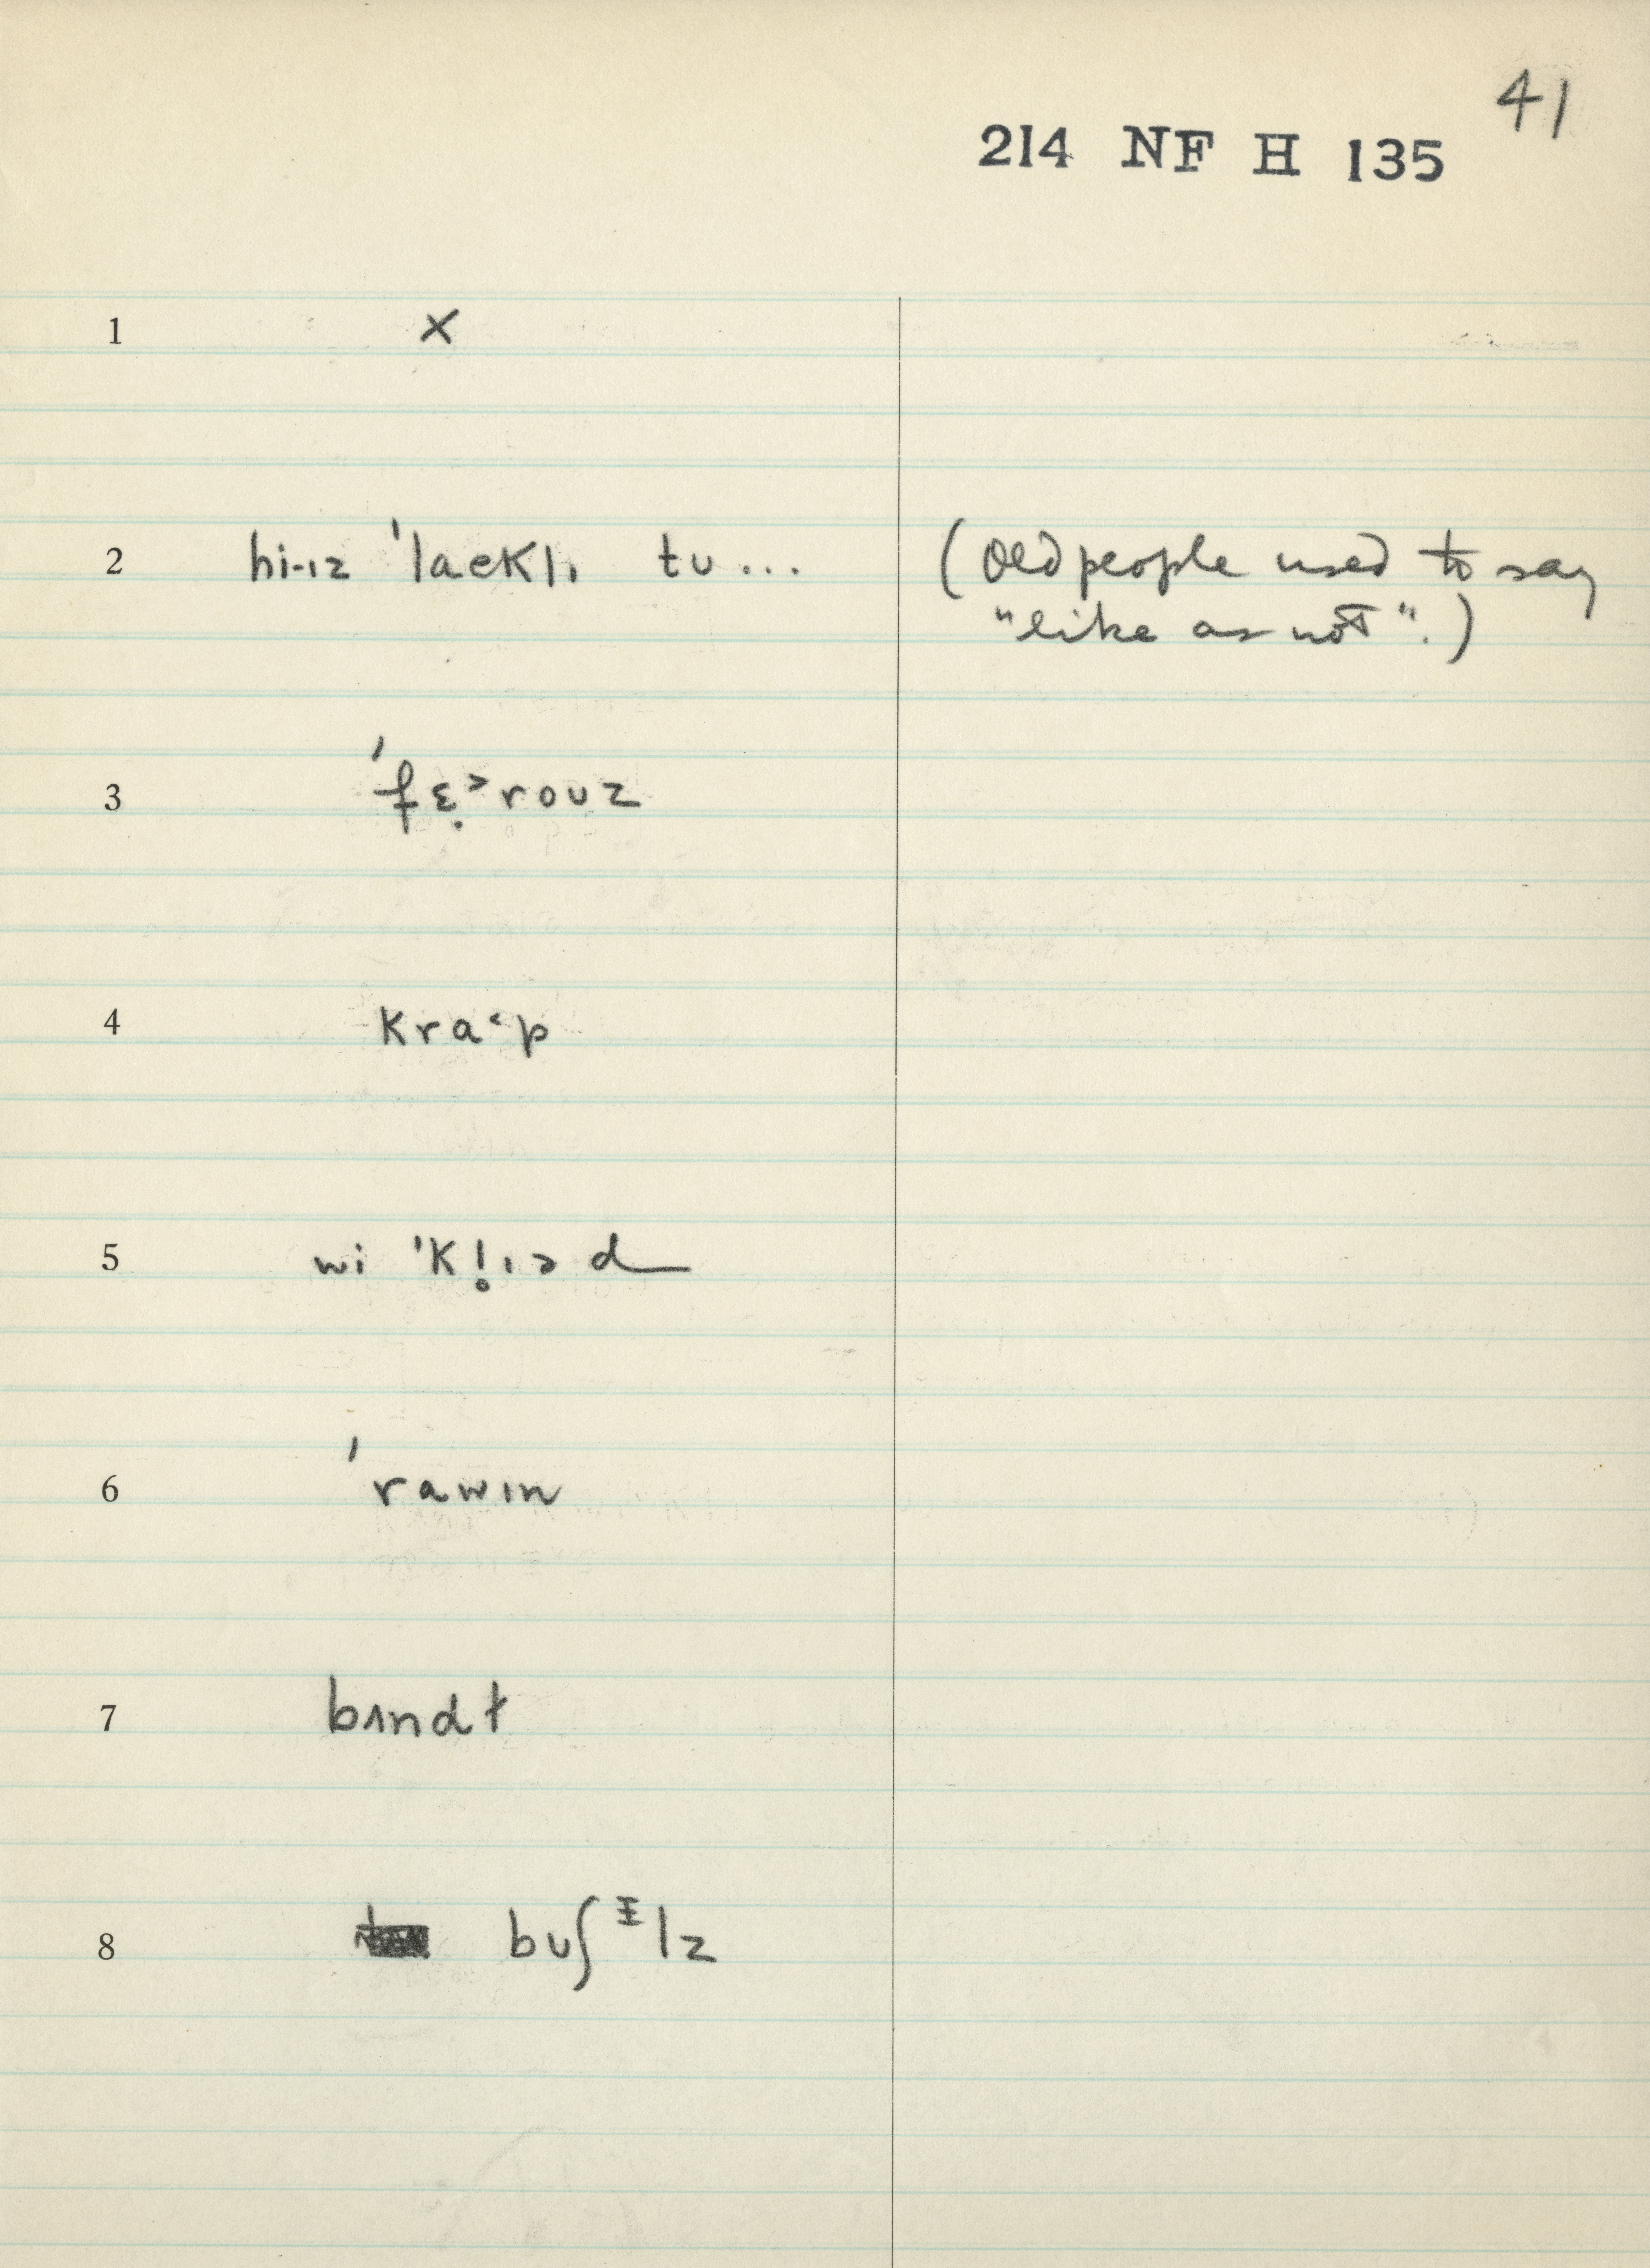 41
214 NF H 135
1 ×
2 hi·ɪz ˈlaɛklɪ tʊ... (Old people used to say
"like as not".)
3 ˈfɛ̣˃roʊz
4 kra˂p
5 wi ˈkl̥ɪɚd
6 ˈrawɪn
7 bɪndɫ
8 bʊʃᵻlz